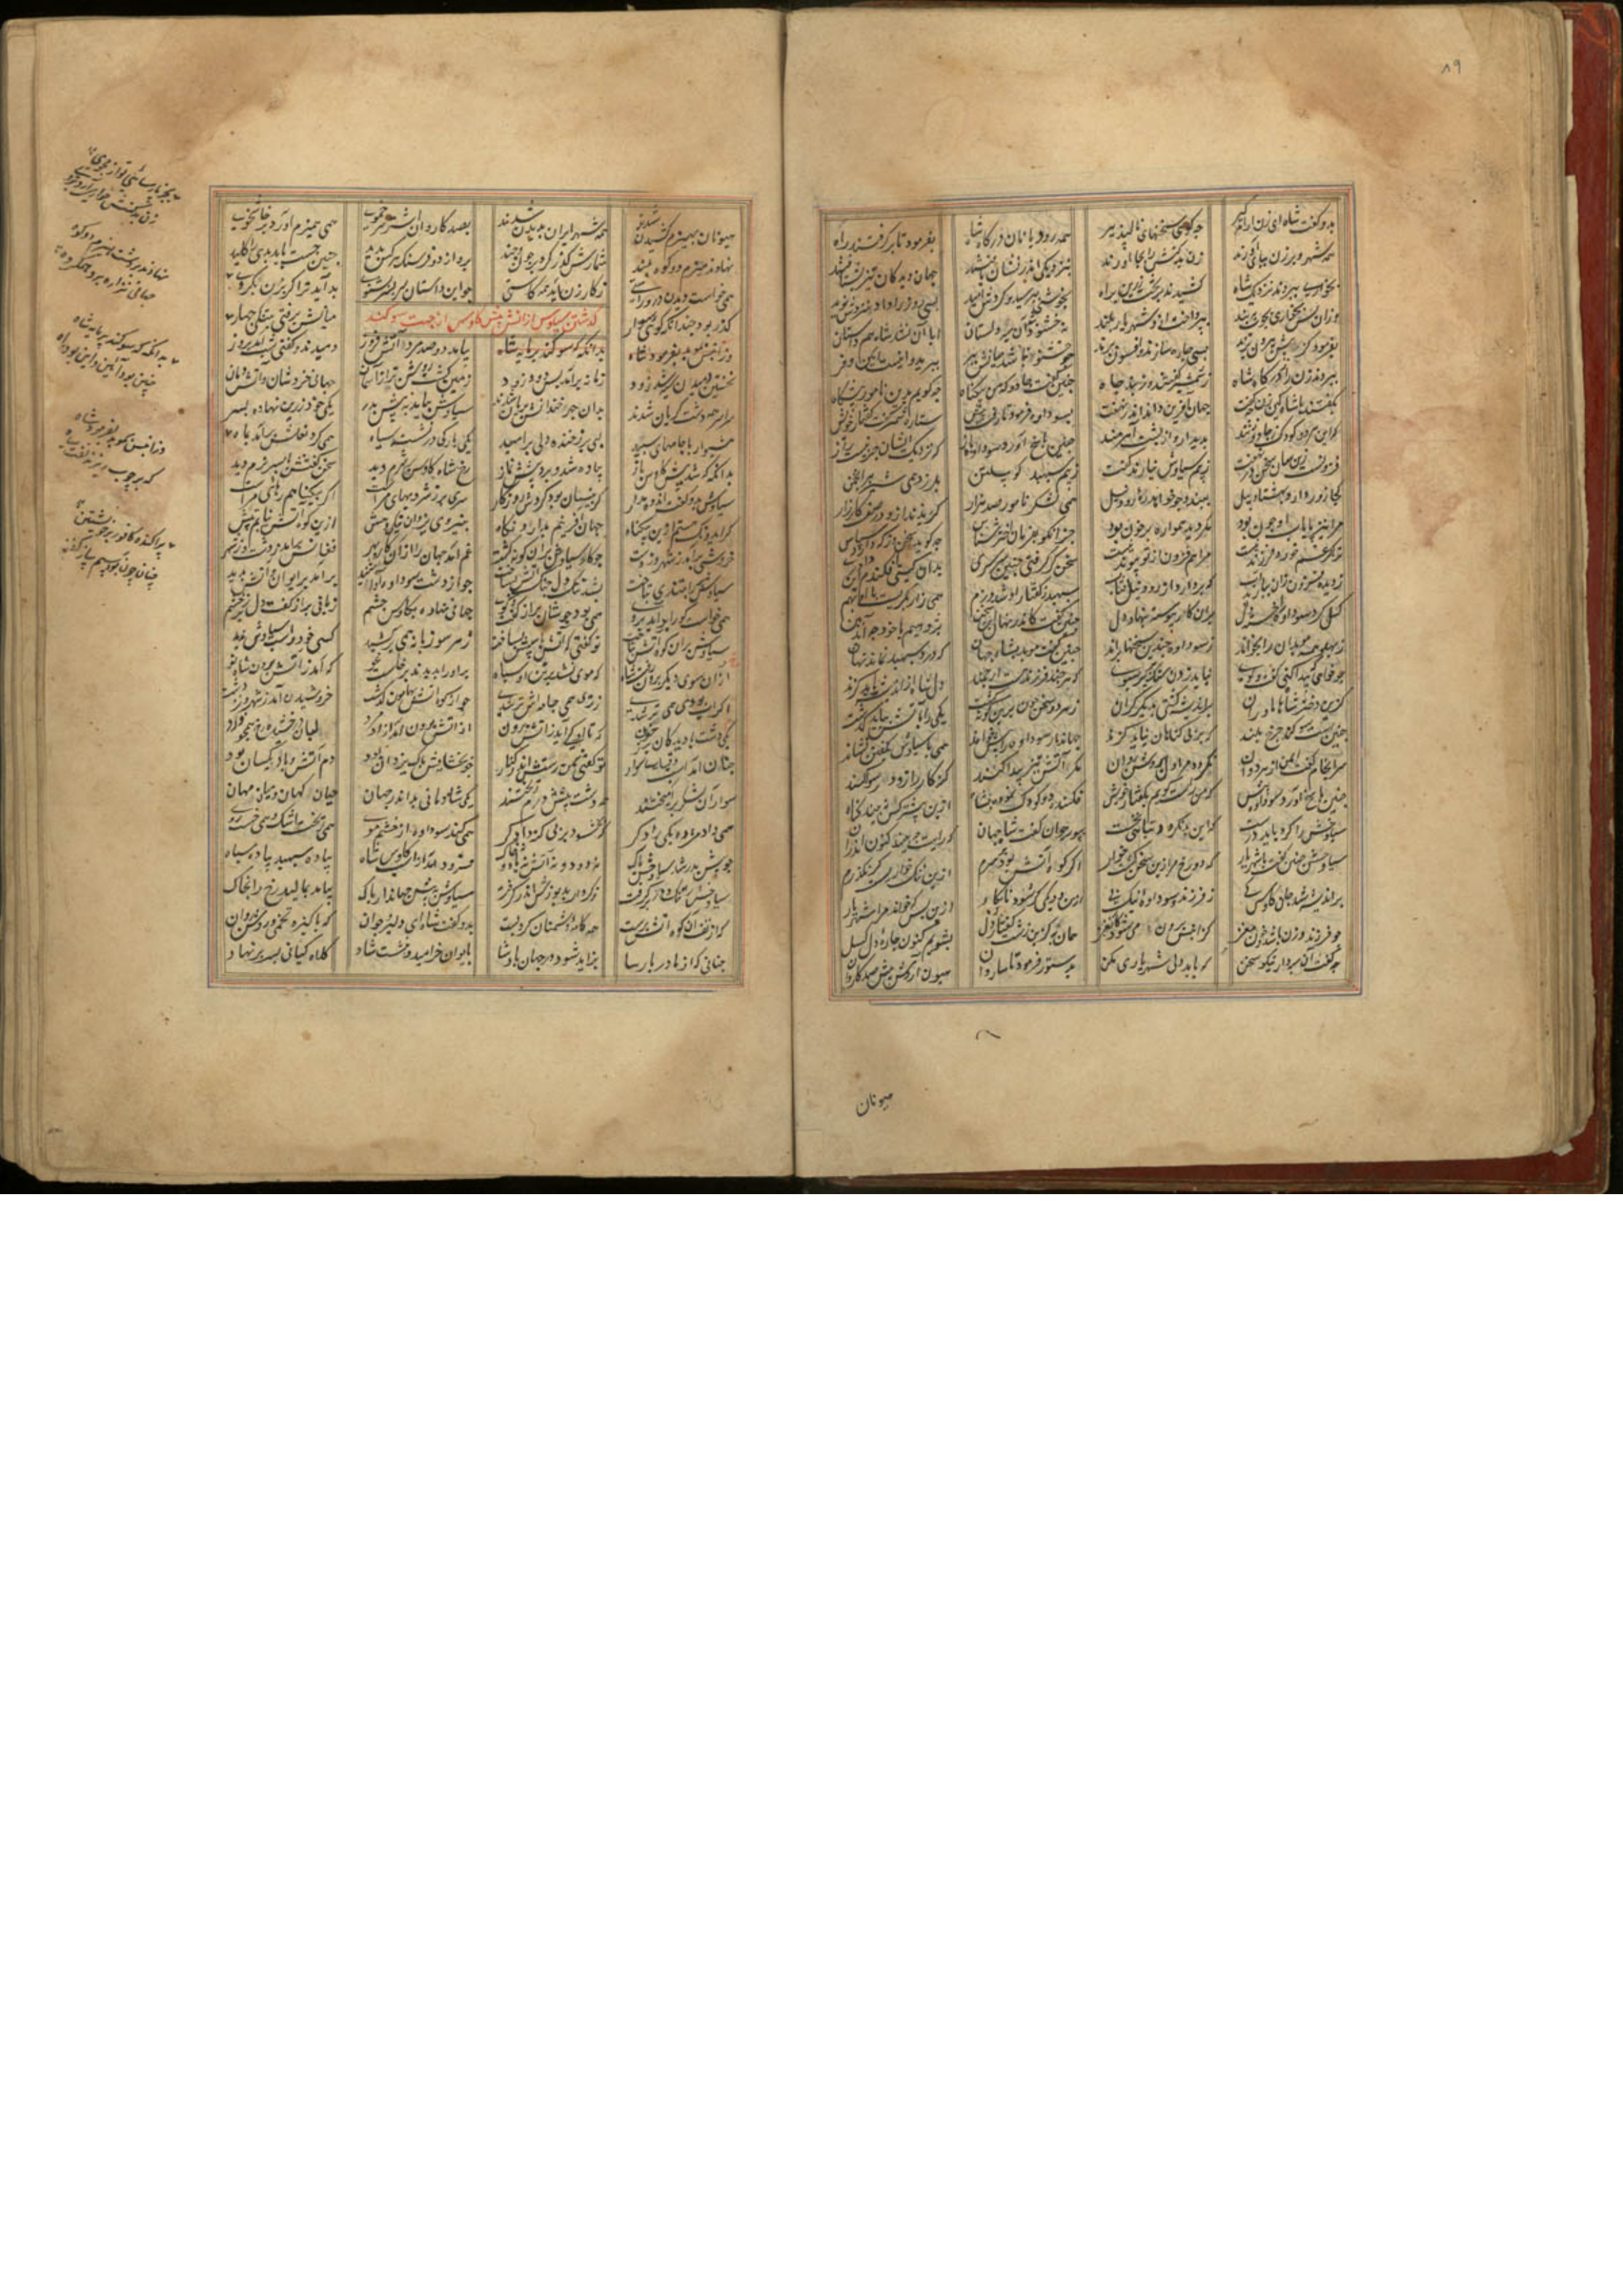 ۸۹
بدو گفت شاه ای زن چه گویی سخنهای نادلپذیر همه رودبانان درگاه شاه بفرمود تا برگرفتند راه
همه شهر و برزن بپای آورند زن بدکنش را بجا آورند بنزدیکی اندر نشان یافتند جهان دیدگان تیز بشتافتند
بخواری ببردند نزدیک شاه کشیدند بدبخت زن را براه بخوبی بپرسید و کردش امید بسی روز را داد نیزش نوید
وزان پس بخواری بچوب و ببند بپرداخت ازو شهریار بلند نه خستو شد آن داستان ابا آن نبد شاه همداستان
بفرمود کز پیش بیرون برند بسی چاره سازند و افسون برند ببرید و اینست آیین و فر
ببردند زن را ز درگاه شاه ز شمشیر گفتند وز چاه چنین گفت جادو که من بیگناه چه گویم بدین نامور پیشگاه
بگفتند با شاه کین زن چه گفت جهان آفرین داند اندر نهفت بسودابه فرمود تا رفت پیش ستاره شمر گفت گفتار خویش
که این هر دو کودک ز جادو زنند پدیدار از پشت آهرمنند چنین پاسخ آورد سودابه باز که نزدیک ایشان جز اینست راز
فزونست زین شان سخن در نهفت ز بیم سیاوش نیارند گفت ز بیم سپهبد گو پیلتن بلرزد همی شیر در انجمن
کجا زور دارد بهشتاد پیل ببندد چو خواهد ره رود نیل همی لشکر نامور صد هزار گریزند ازو در صف کارزار
مرا نیز پایاب او چون بود مگر دیده همواره پر خون بود جز آنکو بفرماید اخترشناس چه گوید سخن وز که دارد سپاس
ترا گر غم خرد فرزند نیست مرا هم فزون از تو پیوند نیست سخن گر گرفتی چنین سرسری بدان گیتی افکندم این داوری
ز دیده فزون زان ببارید آب که بردارد از رود نیل آفتاب سپهبد ز گفتار او شد دژم همی زار بگریست با او بهم
گسی کرد سودابه را خسته دل بران کار پیوسته بنهاد دل چنین گفت کاندر نهان این سخن پژوهیم تا خود چه آید ببن
ز پهلو همه موبدان را بخواند ز سودابه چندین سخنها براند چنین گفت موبد بشاه جهان که درد سپهبد نماند نهان
چو خواهی که پیدا کنی گفت و گوی بباید زدن سنگ را بر سبوی که هر چند فرزند هست ارجمند دل شاه از اندیشه یابد گزند
وزین دختر شاه هاماوران پر اندیشه گشتی بدیگر کران ز هر دو سخن چون برین گونه گشت یکی را بآتش بباید گذشت
چنین است سوگند چرخ بلند که بر بیگناهان نیاید گزند جهاندار سودابه را پیش خواند همی با سیاوش بگفتن نشاند
سرانجام گفت ایمن از هر دوان نگردد مرا دل نه روشن روان مگر کآتش تیز پیدا کند گنه کار را زود رسوا کند
چنین پاسخ آورد سودابه پیش که من راست گویم بگفتار خویش فکنده دو کودک نمودم بشاه ازین بیشتر کس نبیند گناه
سیاوخش را کرد باید درست که این بد بکرد و تباهی بجست بپور جوان گفت شاه جهان که رایت چه بیند کنون اندران
سیاوش چنین گفت با شهریار که دوزخ مرا زین سخن گشت خوار اگر کوه آتش بود بسپرم ازین ننگ خواریست گر نگذرم
پر اندیشه شد جان کاوس کی ز فرزند و سودابه نیک پی کزین دو یکی گر شود نابکار ازین پس که خواند مرا شهریار
چو فرزند و زن باشدم خون و مغز کرا بیش بیرون شود کار نغز همان به کزین زشت گفتار دل بشویم کنون چاره دل گسل
چه گفت آن سپهدار نیکو سخن که با بددلی شهریاری مکن بدستور فرمود تا ساروان هیون آرد از دشت صد کاروان
هیونان
هیونان بهیزم کشیدن شدند همه شهر ایران بدیدن شدند بصد کاروان اشتر سرخ موی همی هیزم آورد پرخاشجوی
نهادند هیزم دو کوه بلند شمارش گذر کرد بر چون و چند ز دور از دو فرسنگ هر کس بدید چنین جست باید بدی را کلید
همی خواست دیدن در راستی ز کار زن آید همه کاستی چو این داستان سر بسر بشنوی به آید ترا گر بزن نگروی
گذر بود چندانکه گویی سوار میانش برفتی بتنگی چهار
گذشتن سیاوس از آتش پیش کاوس از جهت سوگند
وزانپس بموبد بفرمود شاه بدانگه که سوگند پرمایه شاه بیامد دو صد مرد آتش فروز دمیدند و گفتی شب آمد بروز
نخستین دمیدن سیه شد ز دود زبانه برآمد پس دود زود زمین گشت روشن تر از آسمان جهانی خروشان و آتش دمان
سراسر همه دشت بریان شدند بدان چهر خندانش گریان شدند سیاوش بیامد به پیش پدر یکی خود زرین نهاده بسر
هشیوار با جامهای سپید لبی پر ز خنده دلی پر امید یکی بارگی بر نشسته سیاه همی گرد نعلش برآمد بماه
بدانگه که شد پیش کاوس باز پیاده شد و برد پیشش نماز رخ شاه کاوس پر شرم دید سخن گفتنش با پسر نرم دید
سیاوش بدو گفت انده مدار کزین سان بود گردش روزگار سری پر ز شرم و بهایی مراست اگر بیگناهم رهایی مراست
گر ایدونکه هستم ازین بیگناه جهان آفرینم بدارد نگاه بنیروی یزدان نیکی دهش ازین کوه آتش نیابم تپش
خروشی برآمد ز شهر و ز دشت غم آمد جهان را ازان کار بهر فغانش برآمد ز دشت و ز شهر
سیاوش سیه را بتندی بتاخت نشد تنگ دل جنگ آتش بساخت چو از دشت سودابه آوا شنید برآمد بایوان و آتش بدید
همی خواست کو را بد آید بروی همی بود جوشان پر از گفت و گوی جهانی نهاده بکاوس چشم زبانی پر از گفت و دل پر ز خشم
سیاوش بران کوه آتش بتاخت تو گفتی که آتش بساخت ز هر سو زبانه همی برکشید کسی خود و اسپ سیاوش ندید
ازان سوی دیگر برون که موی نشد بر تن او سیاه چو او را بدیدند برخاست غو که آمد ز آتش برون شاه نو
اگر آب بودی همی تر شدی ز تری همی جامه چو از کوه آتش بهامون گذشت خروشیدن آمد ز شهر و ز دشت
یکی دشت با دیدگان پر ز خون که تا او کی آید ز آتش برون از آتش برون آمد آزاد مرد لبان پر ز خنده رخ همچو ورد
چنان آمد اسپ و قبای سوار تو گفتی سمن داشت اندر کنار چو بخشایش پاک یزدان بود دم آتش و باد یکسان بود
سواران لشکر برانگیختند همه دشت پیشش درم ریختند یکی شادمانی بد اندر جهان میان کهان و میان مهان
همی داد مژده یکی را دگر که بخشود بر بیگنه دادگر همی کند سودابه از خشم موی همی ریخت اشک و همی خست روی
چو پیش پدر شد سیاوخش پاک نه دود و نه آتش نه خاک فرود آمد از اسپ کاوس شاه پیاده سپهبد پیاده سپاه
سیاوخش را تنگ در بر گرفت ز کردار بد پوزش اندر گرفت سیاوش به پیش جهاندار پاک بیامد بمالید رخ را بخاک
که از تف آن کوه آتش برست همه کامه دشمنان کرد پست بدو گفت شاه ای دلیر جوان که پاکیزه تخمی و روشن روان
چنانی که از مادر پارسا بزاید شود در جهان پادشا بایوان خرامید و بنشست شاد کلاه کیانی بسر بر نهاد
بجز پارسائی تو از زن مجوی
زن بدکنش خواری آرد بروی
نهادند بر دشت هیزم دو کوه
جهانی نظاره بر و همگروه
بدانگه که سوگند پرمایه شاه
چنین بود آیین و این بود راه
وزانپس بموبد بفرمود شاه
که بر چوب ریزند نفت سیاه
پراکنده کافور بر خویشتن
چنان چون بود رسم و ساز کفن